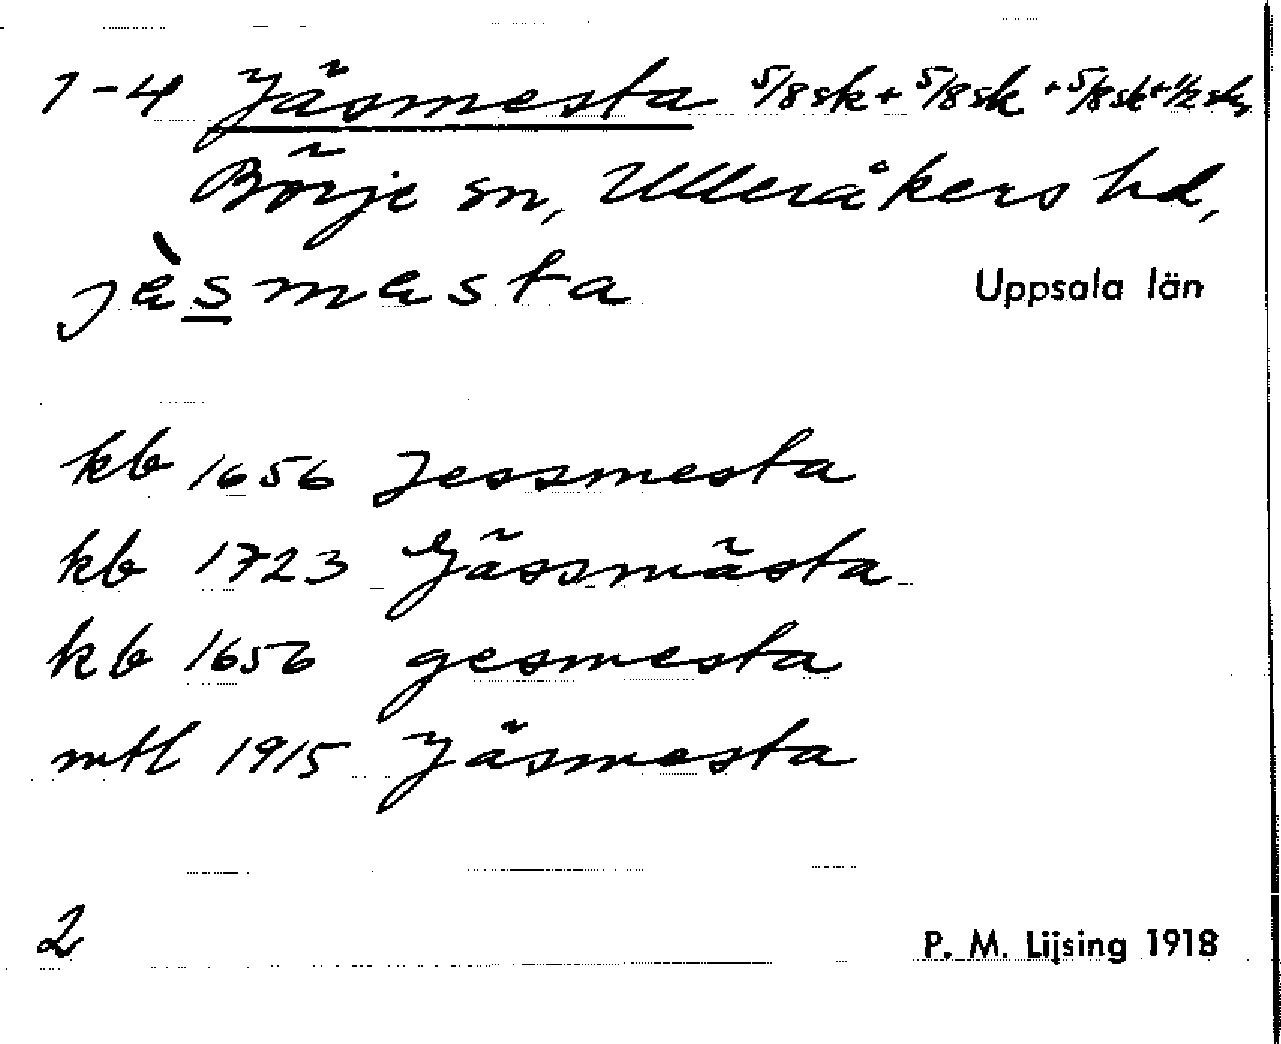 1-4 Jäsmesta 5/8 sk + 5/8 sk + 5/8 sk + 1/2 sk,
Börje sn, Ulleråkers hd,
jὲsmesta
Uppsala län
kb 1656 Jessmesta
kb 1723 Jässmästa
kb 1656 gesmesta
mtl 1915 Jäsmesta
2
P. M. Lijsing 1918